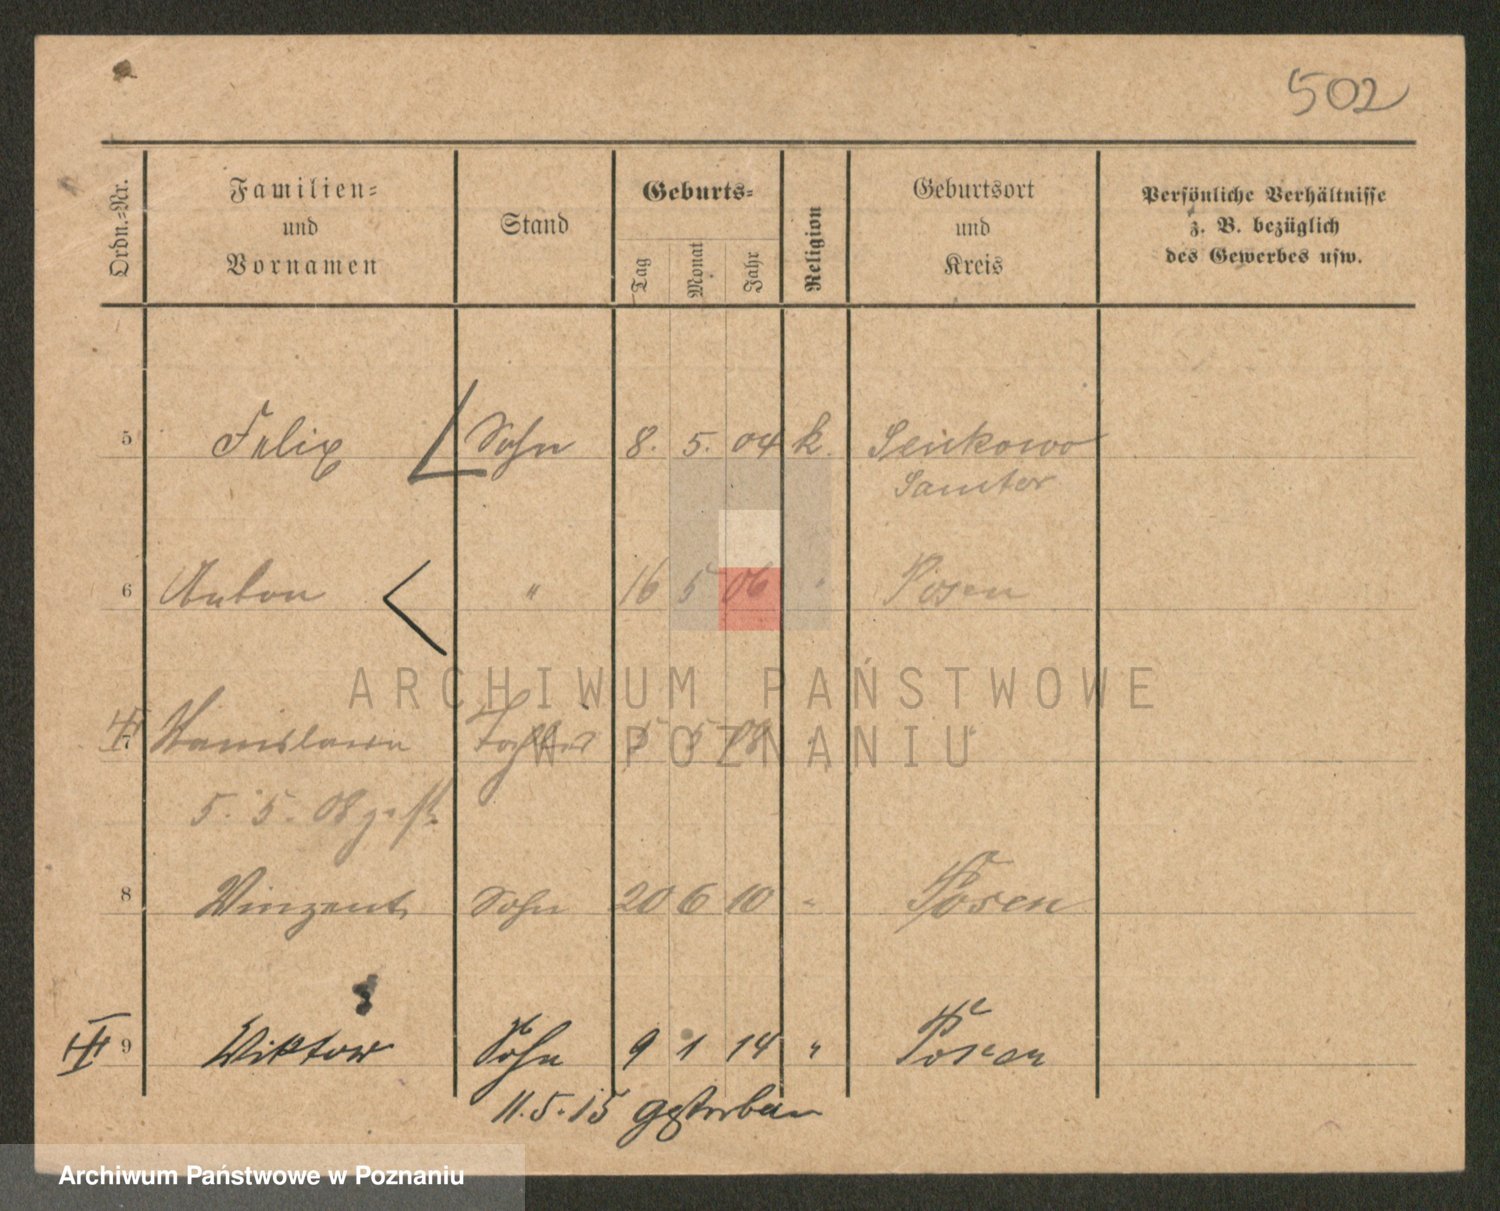 502
Ordn.-Nr.
Familien-
und
Vornamen
Stand
Geburts-
Tag
Monat
Jahr
Religion
Geburtsort
und
Kreis
Persönliche Verhältnisse
z. B. bezüglich
des Gewerbes usw.
5 Felix Sohn 8. 5. 04 k. Senkowo
Samter
6 Anton " 16 5 06 " Posen
ARCHIWUM PAŃSTWOWE
W POZNANIU
7 Stanislawa Tochter 5 5 08 "
5. 5. 08 gest.
8 Winzent Sohn 20 6 10 " Posen
9 Wiktor Sohn 9 1 14 " Posen
11.5.15 gestorben
Archiwum Państwowe w Poznaniu